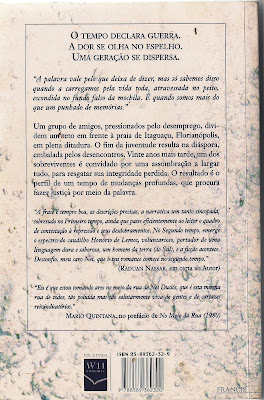 O TEMPO DECLARA GUERRA.
A DOR SE OLHA NO ESPELHO.
UMA GERAÇÃO SE DISPERSA.
"A palavra vale pelo que deixa de dizer, mas só sabemos disso
quando a carregamos pela vida toda, atravessada no peito,
escondida no fundo falso da mochila. E quando somos mais do
que um punhado de memórias."
Um grupo de amigos, pressionados pelo desemprego, divi-
dem um teto em frente à praia de Itaguaçu, Florianópolis,
em plena ditadura. O fim da juventude resulta na diáspora,
embalada pelos desencontros. Vinte anos mais tarde, um dos
sobreviventes é convidado por uma assombração a largar
tudo, para resgatar sua integridade perdida. O resultado é o
perfil de um tempo de mudanças profundas, que procura
fazer justiça por meio da palavra.
"A frase é sempre boa, as descrições precisas, a narrativa um tanto sincopada,
sobretudo no Primeiro tempo, ainda que passe eficientemente ao leitor o quadro
de contestação à repressão e seus desdobramentos. No Segundo tempo, emerge
o espectro do caudilho Honório de Lemos, voluntarioso, portador de uma
linguagem dura e saborosa, um homem da terra (do Sul), e a ficção acontece.
Desconfio, meu caro Nei, que teu romance começa no segundo tempo."
(RADUAN NASSAR, em carta ao Autor)
"Eu é que estou tomando ares no meio da rua de Nei Duclós, que é esta mágica
rua de todos, tão poluída mas tão salutarmente viva de gentes e de cartazes
reivindicatórios."
MARIO QUINTANA, no prefácio de No Meio da Rua (1980)
UM LIVRO
W11
EDITORES
ISBN 85-89362-32-9
9 788589 362320
FRANCIS